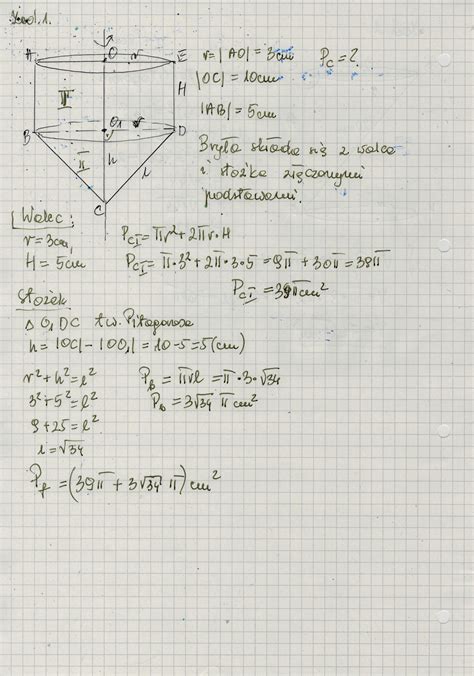 Zad. 1.
A O r E
r = |AO| = 3cm P_C = ?
|OC| = 10cm
H
I
|AB| = 5cm
B O₁ r D
Bryła składa się z walca
i stożka złączonymi
podstawami.
II h l
C
Walec:
r = 3cm,
H = 5cm
P_CI = πr² + 2πr·H
P_CI = π·3² + 2π·3·5 = 9π + 30π = 39π
P_CI = 39π cm²
Stożek
Δ O₁DC tw. Pitagorasa
h = |OC| - |OO₁| = 10 - 5 = 5 (cm)
r² + h² = l²
3² + 5² = l²
9 + 25 = l²
l = √34
P_b = πrl = π·3·√34
P_b = 3√34 π cm²
P_f = (39π + 3√34 π) cm²